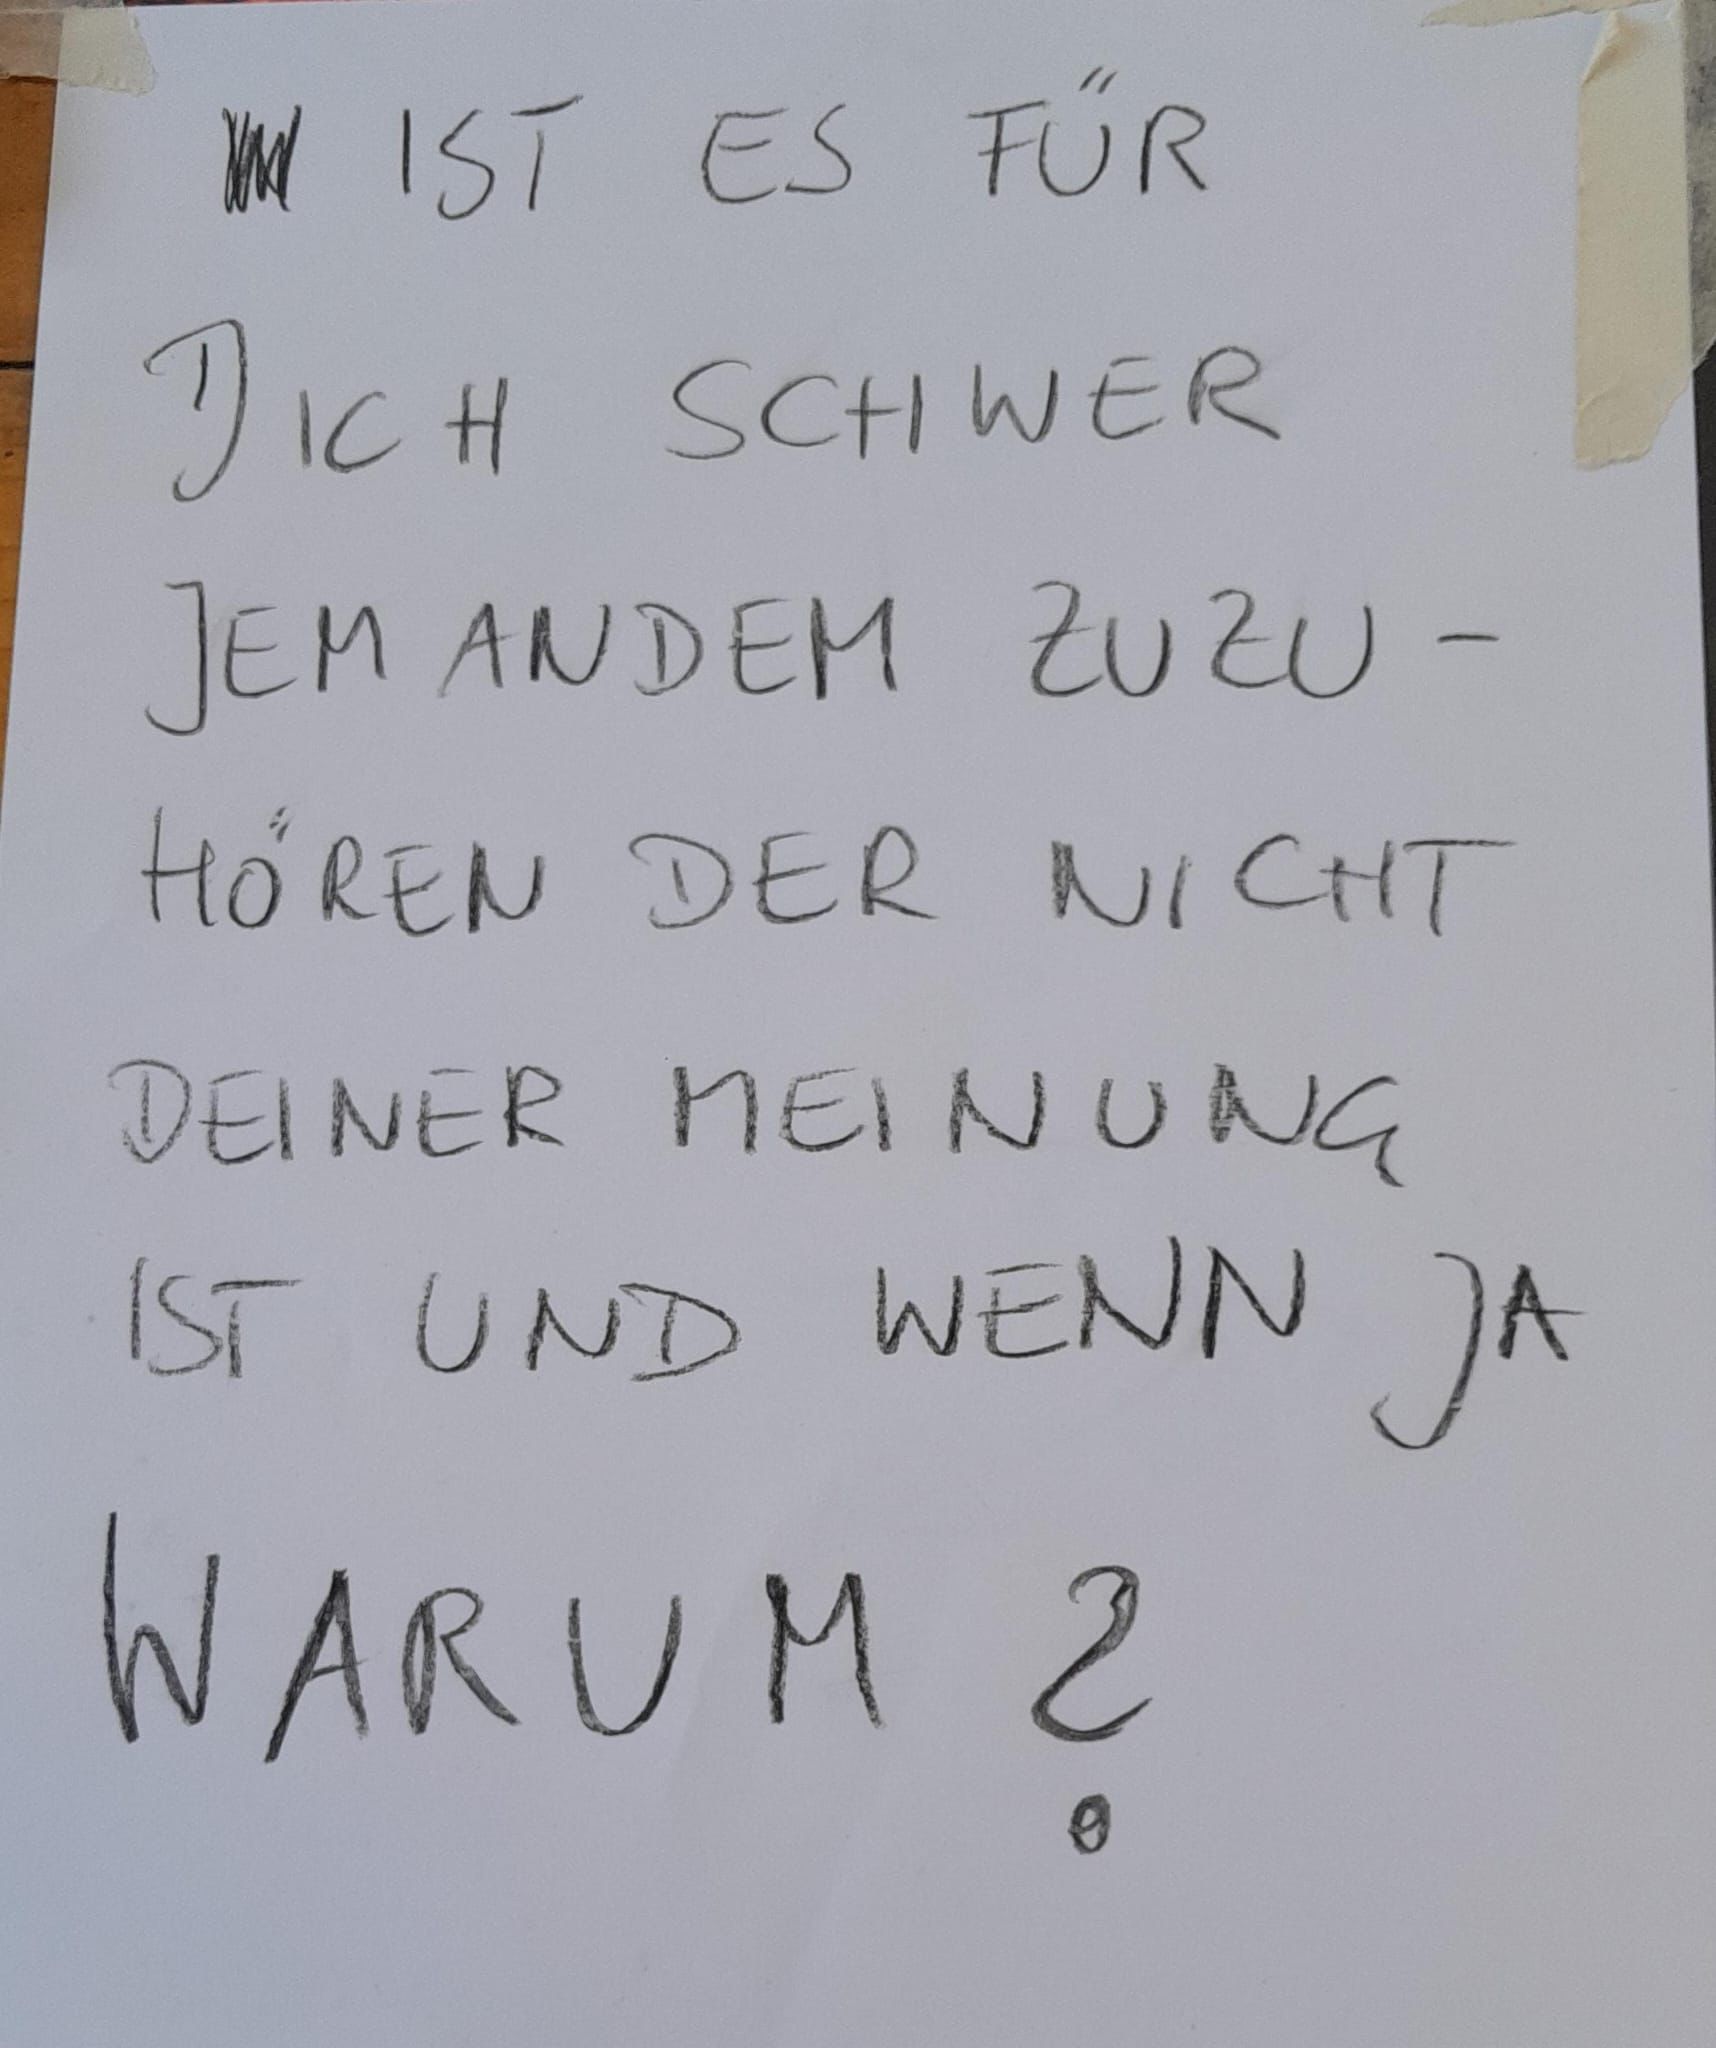 IST ES FÜR
DICH SCHWER
JEMANDEM ZUZU-
HÖREN DER NICHT
DEINER MEINUNG
IST UND WENN JA
WARUM ?